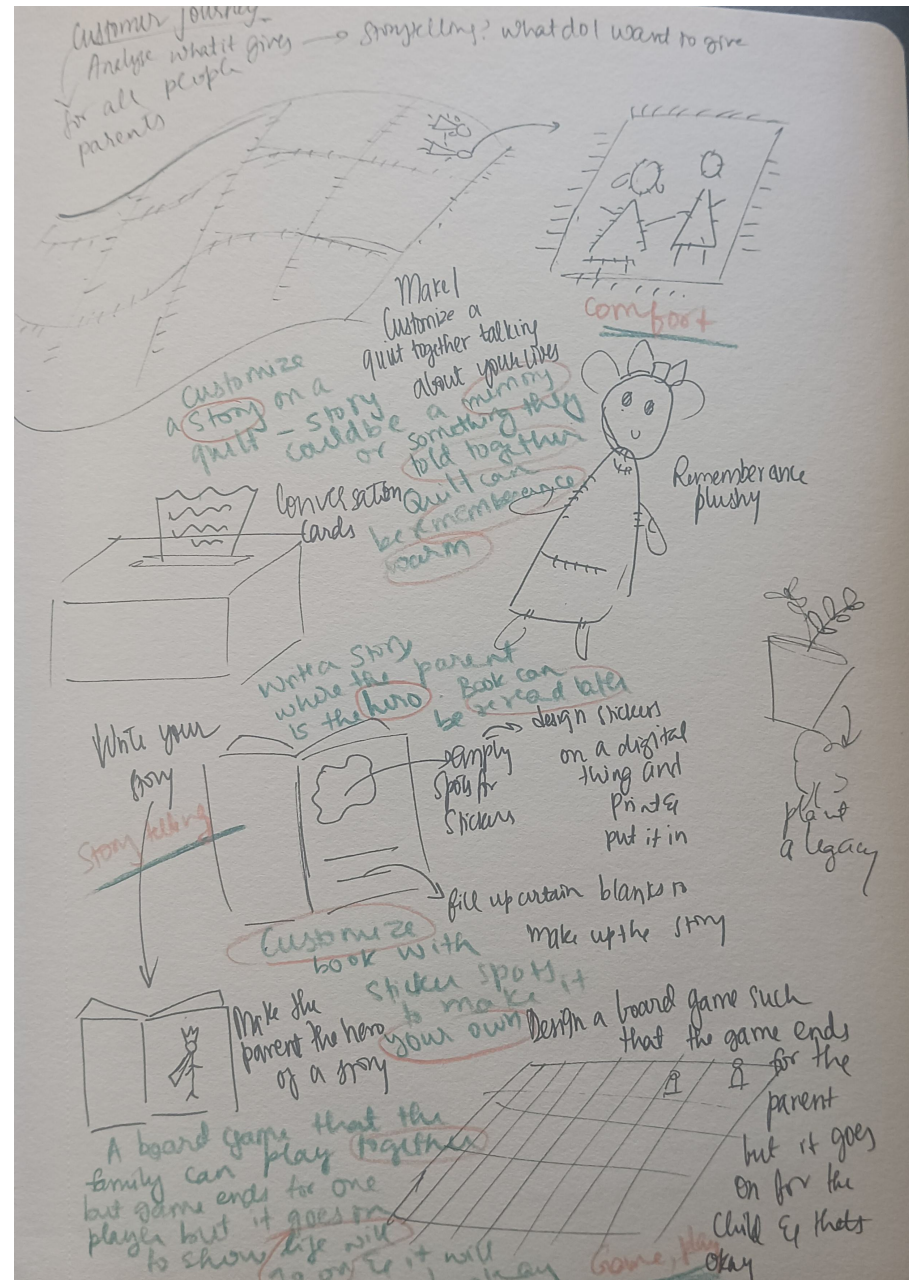 Customer journey
Analyse what it gives → storytelling? What do I want to give
for all people
parents
Comfort
Make/
Customize a
quilt together talking
about your lives
Customize
a story on a
quilt - story
could be a memory
or something they
told together
Quilt can
be rememberence
warm
Rememberance
plushy
Conversation
cards
Write a story
where the parent
is the hero. Book can
be reread later
Write your
story
Story telling
empty
spots for
stickers
design stickers
on a digital
thing and
print &
put it in
plant
a legacy
fill up certain blanks to
make up the story
Customize
book with
sticker spots, it
to make
your own
Make the
parent the hero
of a story
Design a board game such
that the game ends
for the
parent
but it goes
on for the
child & thats
okay
A board game that the
family can play together
but game ends for one
player but it goes on
to show life will
go on & it will
okay
Game, play